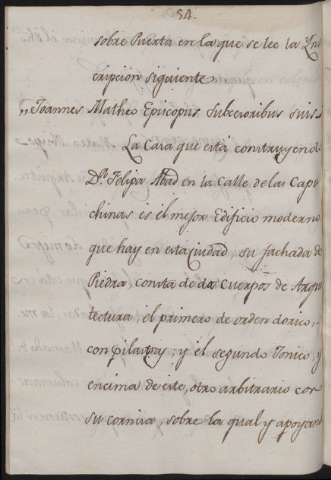 54.
sobre Puerta en la que se lee la Yns
cripcion siguiente
,, Joannes Matheo Episcopus Subcesoribus suis.,
La Casa que està construyendo
Dⁿ. Felipe Abad en la Calle de las Capu
chinas es el mejor Edificio moderno
que hay en esta Ciudad, su fachada de
Piedra, consta de dos Cuerpos de Arqui
tectura, el primero de orden dorico,
con pilastras; y el segundo Jonico, y
encima de este, otro arbitrario con
su cornisa, sobre la qual y apoyan